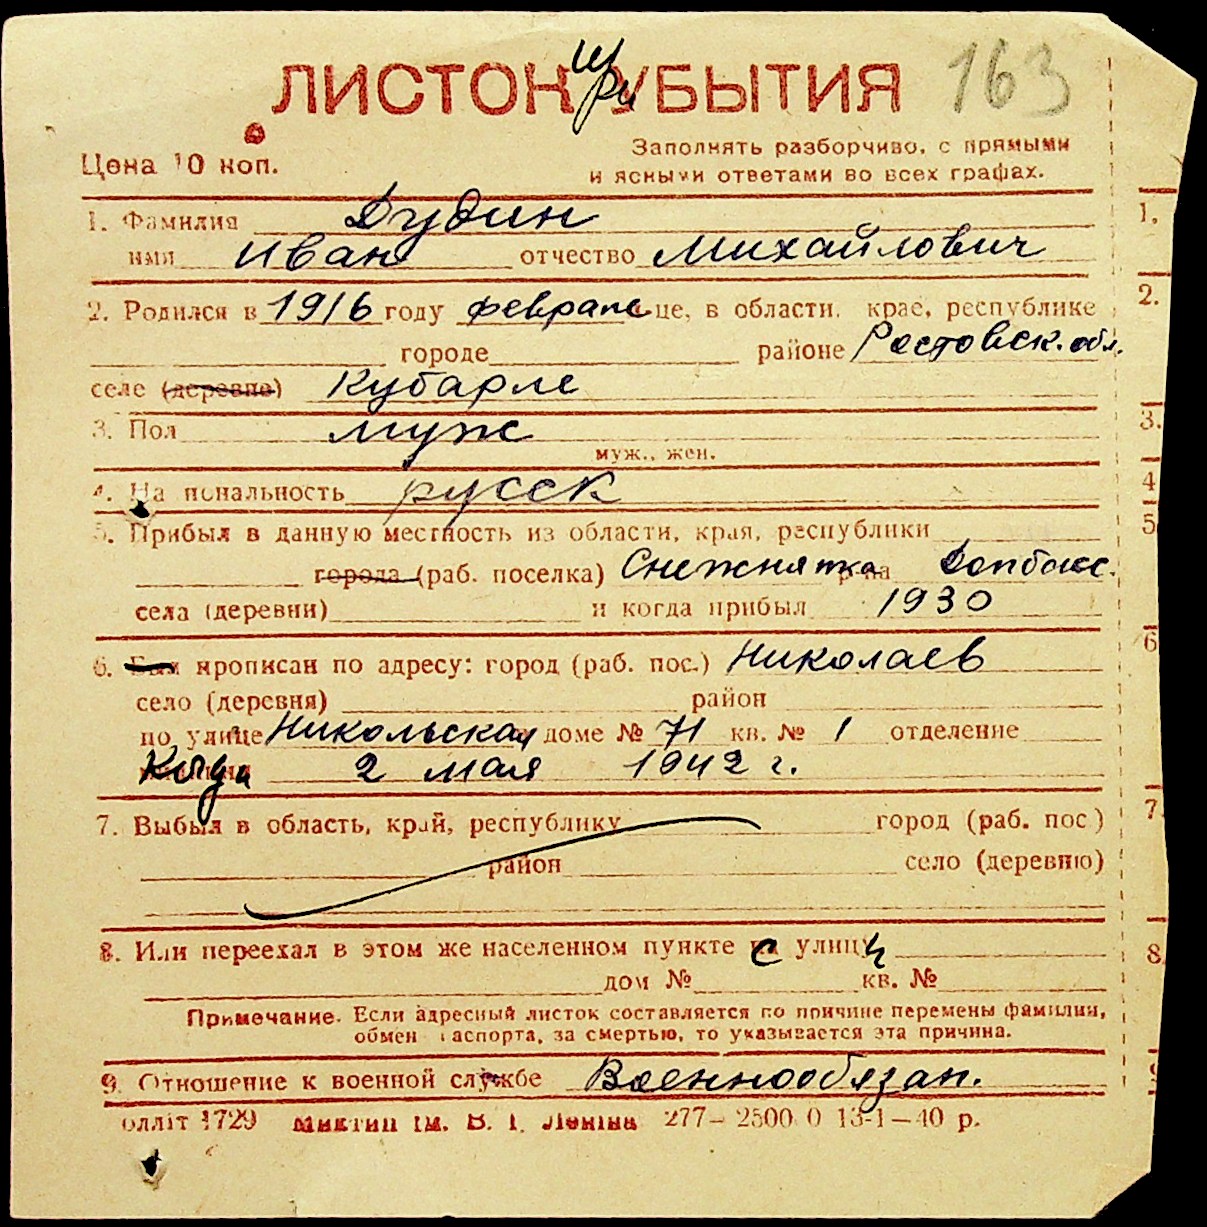 ЛИСТОК УБЫТИЯ 163
При
Цена 10 коп.
Заполнять разборчиво, с прямыми
и ясными ответами во всех графах.
1. Фамилия Дудин
имя Иван отчество Михайлович
2. Родился в 1916 году феврале це, в области, крае, республике
городе районе Ростовск. обл.
селе (деревне) Кубарле
3. Пол муж
муж., жен.
4. Национальность русск
5. Прибыл в данную местность из области, края, республики
города (раб. поселка) Снежнянка р-на Донбасс.
села (деревни) и когда прибыл 1930
6. Был прописан по адресу: город (раб. пос.) Николаев
село (деревня) район
по улице Никольская доме № 71 кв. № 1 отделение
Когда 2 мая 1942 г.
7. Выбыл в область, край, республику город (раб. пос)
район село (деревню)
8. Или переехал в этом же населенном пункте с улицы
дом № кв. №
Примечание. Если адресный листок составляется по причине перемены фамилии,
обмен паспорта, за смертью, то указывается эта причина.
9. Отношение к военной службе Военнообязан.
олліт 1729 Миктип ім. В. І. Леніна 277—2500 0 13-1—40 р.
1.
2.
3.
4
5
6
7.
8